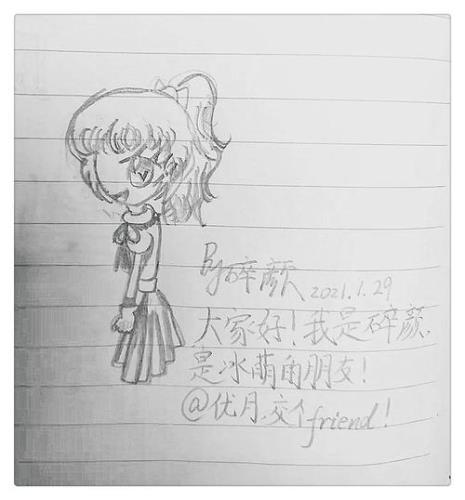 By碎颜 2021.1.29
大家好!我是碎颜.
是冰萌的朋友!
@优月.交个friend!